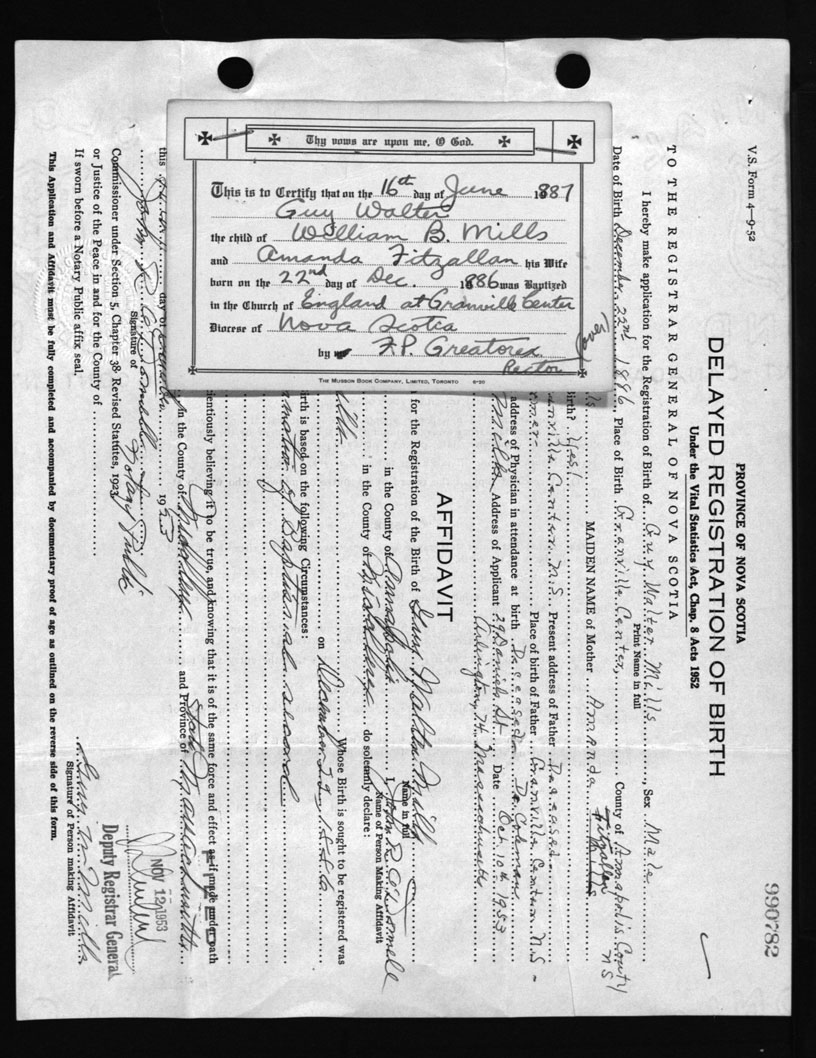 Thy vows are upon me, O God.
This is to Certify that on the 16th day of June 1887
Guy Walter
the child of William B. Mills
and Amanda Fitzallan his Wife
born on the 22nd day of Dec. 1886 was Baptized
in the Church of England at Granville Center
Diocese of Nova Scotia
by F.P. Greatorex
Rector
(over
THE MUSSON BOOK COMPANY, LIMITED, TORONTO 6-20
V.S. Form 4—9-52
990782
PROVINCE OF NOVA SCOTIA
DELAYED REGISTRATION OF BIRTH
Under the Vital Statistics Act, Chap. 8 Acts 1952
TO THE REGISTRAR GENERAL OF NOVA SCOTIA
I hereby make application for the Registration of Birth of Guy Walter Mills, Sex Male
Print Name in full
Date of Birth December 22nd 1886 Place of Birth Granville Center, County of Annapolis County
N S
Fitzallan
MAIDEN NAME of Mother Amanda
Birth? Yes!
Granville Center N.S Present address of Father Deceased
Place of birth of Father Granville Center N.S
address of Physician in attendance at birth Deceased Dr. Coleman
Mills Address of Applicant 29 Daniels St. Date Oct. 10th 1953
Arlington, 74 Massachusetts
AFFIDAVIT
for the Registration of the Birth of Guy Walter Mills
Name in full
in the County of Annapolis I, John R. O'Donnell
Name of Person Making Affidavit
in the County of Middlesex do solemnly declare:
Whose Birth is sought to be registered was
on December 22 1886
Birth is based on the following Circumstances:
of Baptismal record
conscientiously believing it to be true, and knowing that it is of the same force and effect as if made under oath
in the County of Middlesex and Province of State Massachusetts
this day of 1953
John R. O'Donnell Notary Public
Signature of
Commissioner under Section 5, Chapter 38 Revised Statutes, 1923
or Justice of the Peace in and for the County of
If sworn before a Notary Public affix seal.
Guy W. Mills
Signature of Person making Affidavit
NOV 12 1953
Deputy Registrar General
This Application and Affidavit must be fully completed and accompanied by documentary proof of age as outlined on the reverse side of this form.